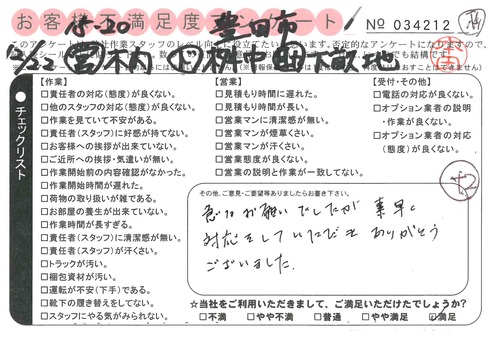 お客様不満足度アンケート
15-20
豊田市
No 034212
12/22
【作業】
□責任者の対応(態度)が良くない。
□他のスタッフの対応(態度)が良くない。
□作業を見ていて不安がある。
□責任者(スタッフ)に好感が持てない。
□お客様への挨拶が出来ていない。
□ご近所への挨拶・気遣いが無い。
□作業開始前の内容確認がなかった。
□作業開始時間が遅れた。
□荷物の取り扱いが雑である。
□お部屋の養生が出来ていない。
□作業時間が長すぎる。
□責任者(スタッフ)に清潔感が無い。
□責任者(スタッフ)が汗くさい。
□トラックが汚い。
□梱包資材が汚い。
□運転が不安(下手)である。
□靴下の履き替えをしてない。
□スタッフにやる気がみられない。
【営業】
□見積もり時間に遅れた。
□見積もり時間が長い。
□営業マンに清潔感が無い。
□営業マンが煙草くさい。
□営業マンが汗くさい。
□営業態度が良くない。
□営業の説明と作業が一致してない。
【受付・その他】
□電話の対応が良くない。
□オプション業者の説明
・作業が良くない。
□オプション業者の対応
(態度)が良くない。
●チェックリスト
その他、ご意見・ご要望等ありましたらお書き下さい。
急なお願いでしたが 素早く
対応をしていただき ありがとう
ございました。
☆当社をご利用いただきまして、ご満足いただけたでしょうか?
□不満 □やや不満 □普通 □やや満足 ☑満足